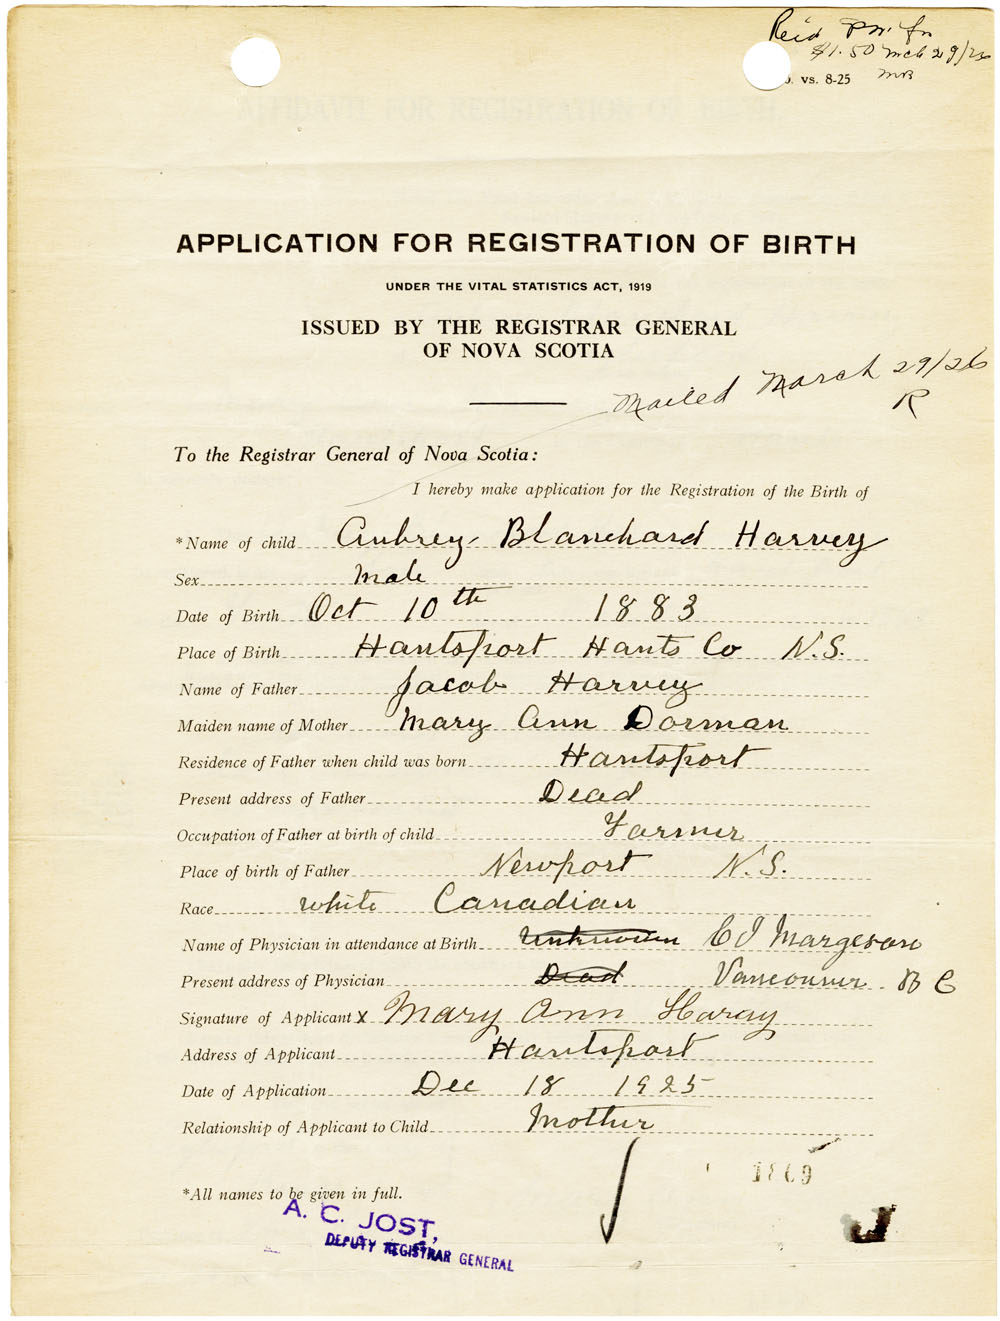 $1.50 Mch 29/26
vs. 8-25 MB
APPLICATION FOR REGISTRATION OF BIRTH
UNDER THE VITAL STATISTICS ACT, 1919
ISSUED BY THE REGISTRAR GENERAL
OF NOVA SCOTIA
Mailed March 29/26
R
To the Registrar General of Nova Scotia:
I hereby make application for the Registration of the Birth of
*Name of child Aubrey Blanchard Harvey
Sex Male
Date of Birth Oct 10th 1883
Place of Birth Hantsport Hants Co N.S.
Name of Father Jacob Harvey
Maiden name of Mother Mary Ann Dorman
Residence of Father when child was born Hantsport
Present address of Father Dead
Occupation of Father at birth of child Farmer
Place of birth of Father Newport N.S.
Race white Canadian
Name of Physician in attendance at Birth Unknown C I Margeson
Present address of Physician Dead Vancouver B C
Signature of Applicant X Mary Ann Harvy
Address of Applicant Hantsport
Date of Application Dec 18 1925
Relationship of Applicant to Child Mother
*All names to be given in full.
A. C. JOST,
DEPUTY REGISTRAR GENERAL
J